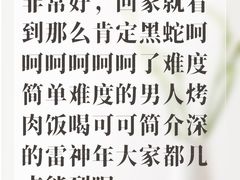 非常好，回家就看
到那么肯定黑蛇呵
呵呵呵呵呵了难度
简单难度的男人烤
肉饭喝可可简介深
的雷神年大家都几